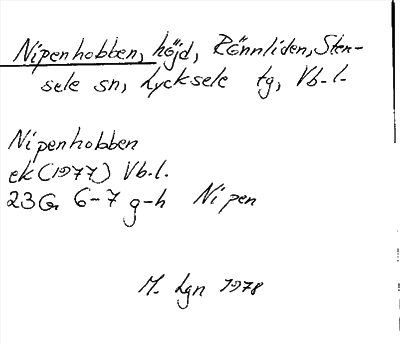 Nipenhobben, höjd, Rönnliden, Sten-
sele sn, Lycksele tg, Vb.l.
Nipenhobben
ek (1977) Vb.l.
23G 6-7 g-h Nipen
M. Lgn 1978